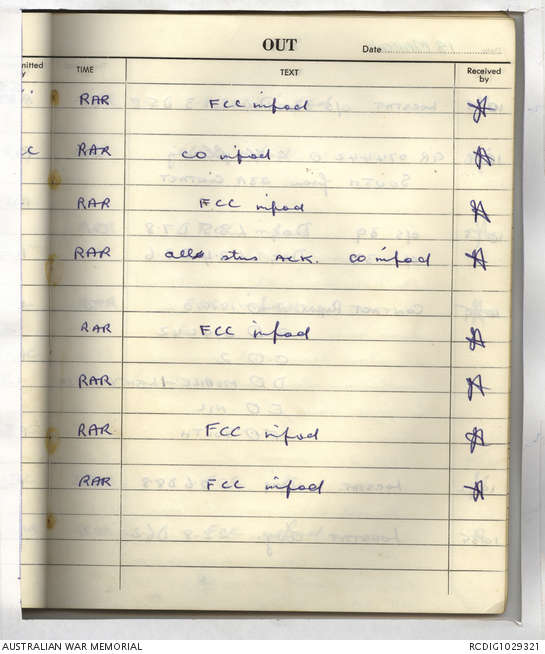 OUT
Date
TIME
TEXT
Received by
RAR FCC infod
C RAR CO infod
RAR FCC infod
RAR all stns ACK. CO infod
RAR FCC infod
RAR
RAR FCC infod
RAR FCC infod
AUSTRALIAN WAR MEMORIAL
RCDIG1029321